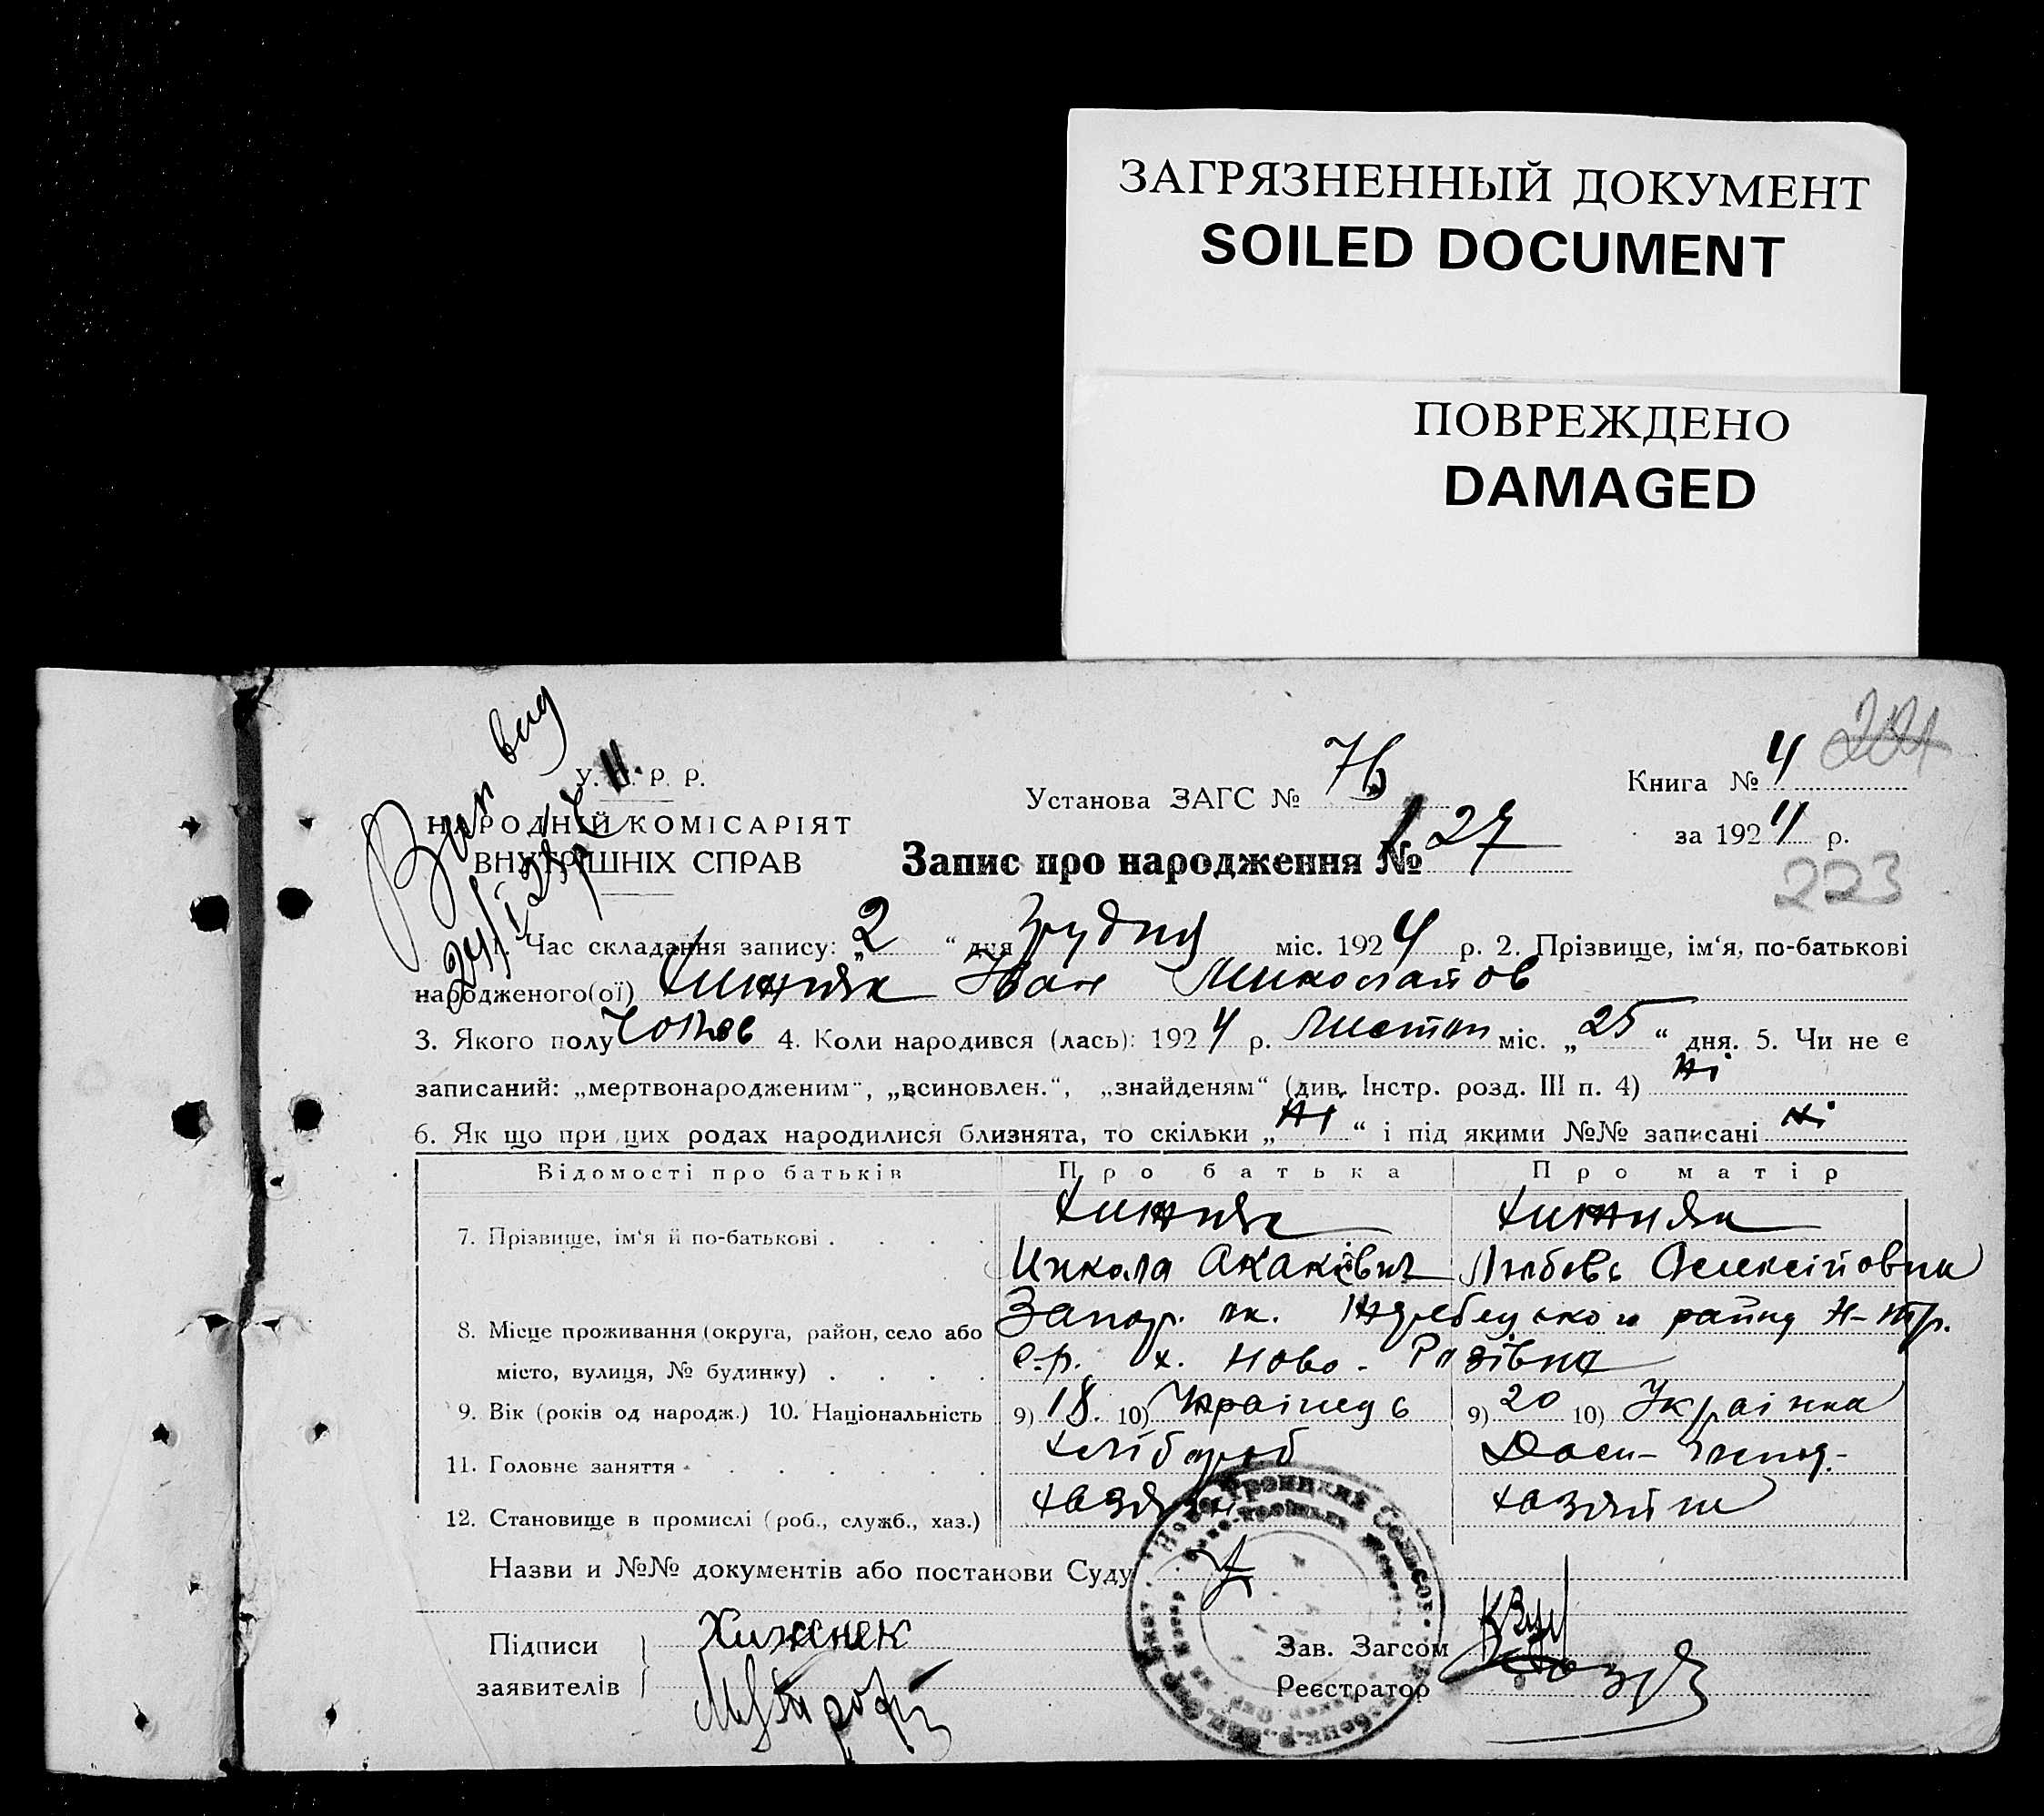 ЗАГРЯЗНЕННЫЙ ДОКУМЕНТ
SOILED DOCUMENT
ПОВРЕЖДЕНО
DAMAGED
вид
У. С. Р. Р.
НАРОДНІЙ КОМІСАРІЯТ
ВНУТРІШНІХ СПРАВ
Установа ЗАГС №
Книга № 4
за 1924 р.
223
Запис про народження № 27
1. Час складання запису: „2 “ дня Грудня міс. 1924 р. 2. Прізвище, ім‘я, по-батькові
народженого(ої) Хижняк Іван Миколайов
3. Якого полу Чолов 4. Коли народився (лась): 1924 р. Листоп міс. „25“ дня. 5. Чи не є
записаний: „мертвонародженим“, „всиновлен.“, „знайденям“ (див. Інстр. розд. III п. 4) Ні
6. Як що при цих родах народилися близнята, то скільки „Ні“ і під якими №№ записані Ні
Відомості про батьків Про батька Про матір
7. Прізвище, ім‘я й по-батькові . . . . Хижняк Хижняк
Микола Акакієвич Любовь Олексійовна
8. Місце проживання (округа, район, село або Запор. ок. Жеребецького району Н-тр.
місто, вулиця, № будинку) . . . . с.р. х. Ново-Розівка
9. Вік (років од народж.) 10. Національність 9) 18. 10) Українець 9) 20 10) Українка
11. Головне заняття . . . . . . хлібороб
12. Становище в промислі (роб., служб., хаз.) хазяїн хазяйка
Назви и №№ документів або постанови Суду
Підписи Хиженек Зав. Загсом
заявителів Реєстратор